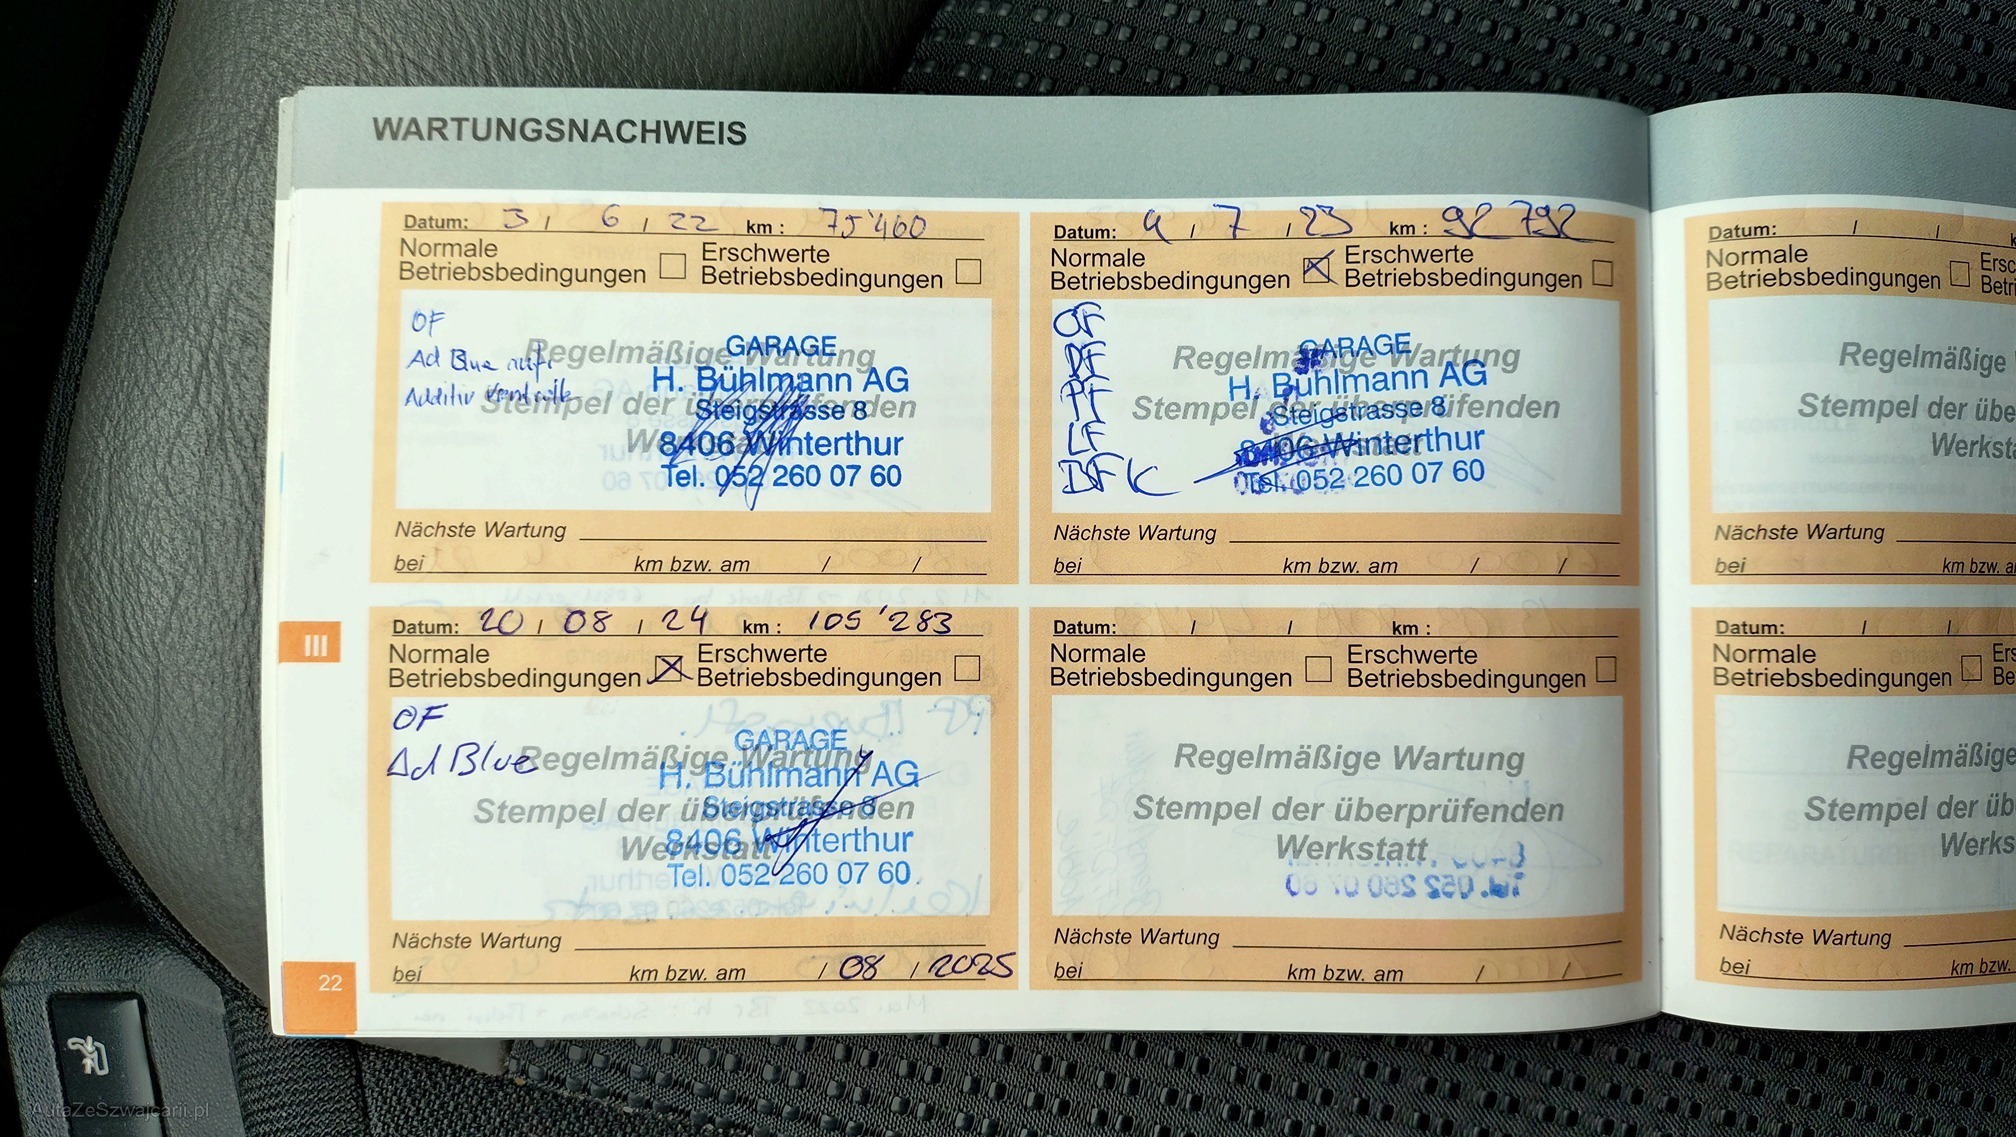 WARTUNGSNACHWEIS
Datum: 3 / 6 / 22 km : 75'460
Normale Betriebsbedingungen
Erschwerte Betriebsbedingungen
OF
Ad Blue auff.
Additiv
Regelmäßige Wartung
Stempel der überprüfenden
Werkstatt
GARAGE
H. Bühlmann AG
Steigstrasse 8
8406 Winterthur
Tel. 052 260 07 60
Nächste Wartung
bei km bzw. am / /
Datum: 4 / 7 / 23 km : 92 792
Normale Betriebsbedingungen
Erschwerte Betriebsbedingungen
OF
DF
PF
LF
BFK
Regelmäßige Wartung
Stempel der überprüfenden
GARAGE
H. Bühlmann AG
Steigstrasse 8
8406 Winterthur
Tel. 052 260 07 60
Nächste Wartung
bei km bzw. am / /
Datum: / /
Normale
Betriebsbedingungen
Regelmäßige
Stempel der
Nächste Wartung
bei km bzw.
III
Datum: 20 / 08 / 24 km : 105'283
Normale Betriebsbedingungen
Erschwerte Betriebsbedingungen
OF
Ad Blue
Regelmäßige Wartung
Stempel der überprüfenden
Werkstatt
GARAGE
H. Bühlmann AG
Steigstrasse 8
8406 Winterthur
Tel. 052 260 07 60.
Nächste Wartung
bei km bzw. am / 08 / 2025
Datum: / / km :
Normale Betriebsbedingungen
Erschwerte Betriebsbedingungen
Regelmäßige Wartung
Stempel der überprüfenden
Werkstatt
Nächste Wartung
bei km bzw. am / /
Datum: / /
Normale
Betriebsbedingungen
Regelmäßige
Stempel der
Nächste Wartung
bei km bzw.
22
AutaZeSzwajcarii.pl